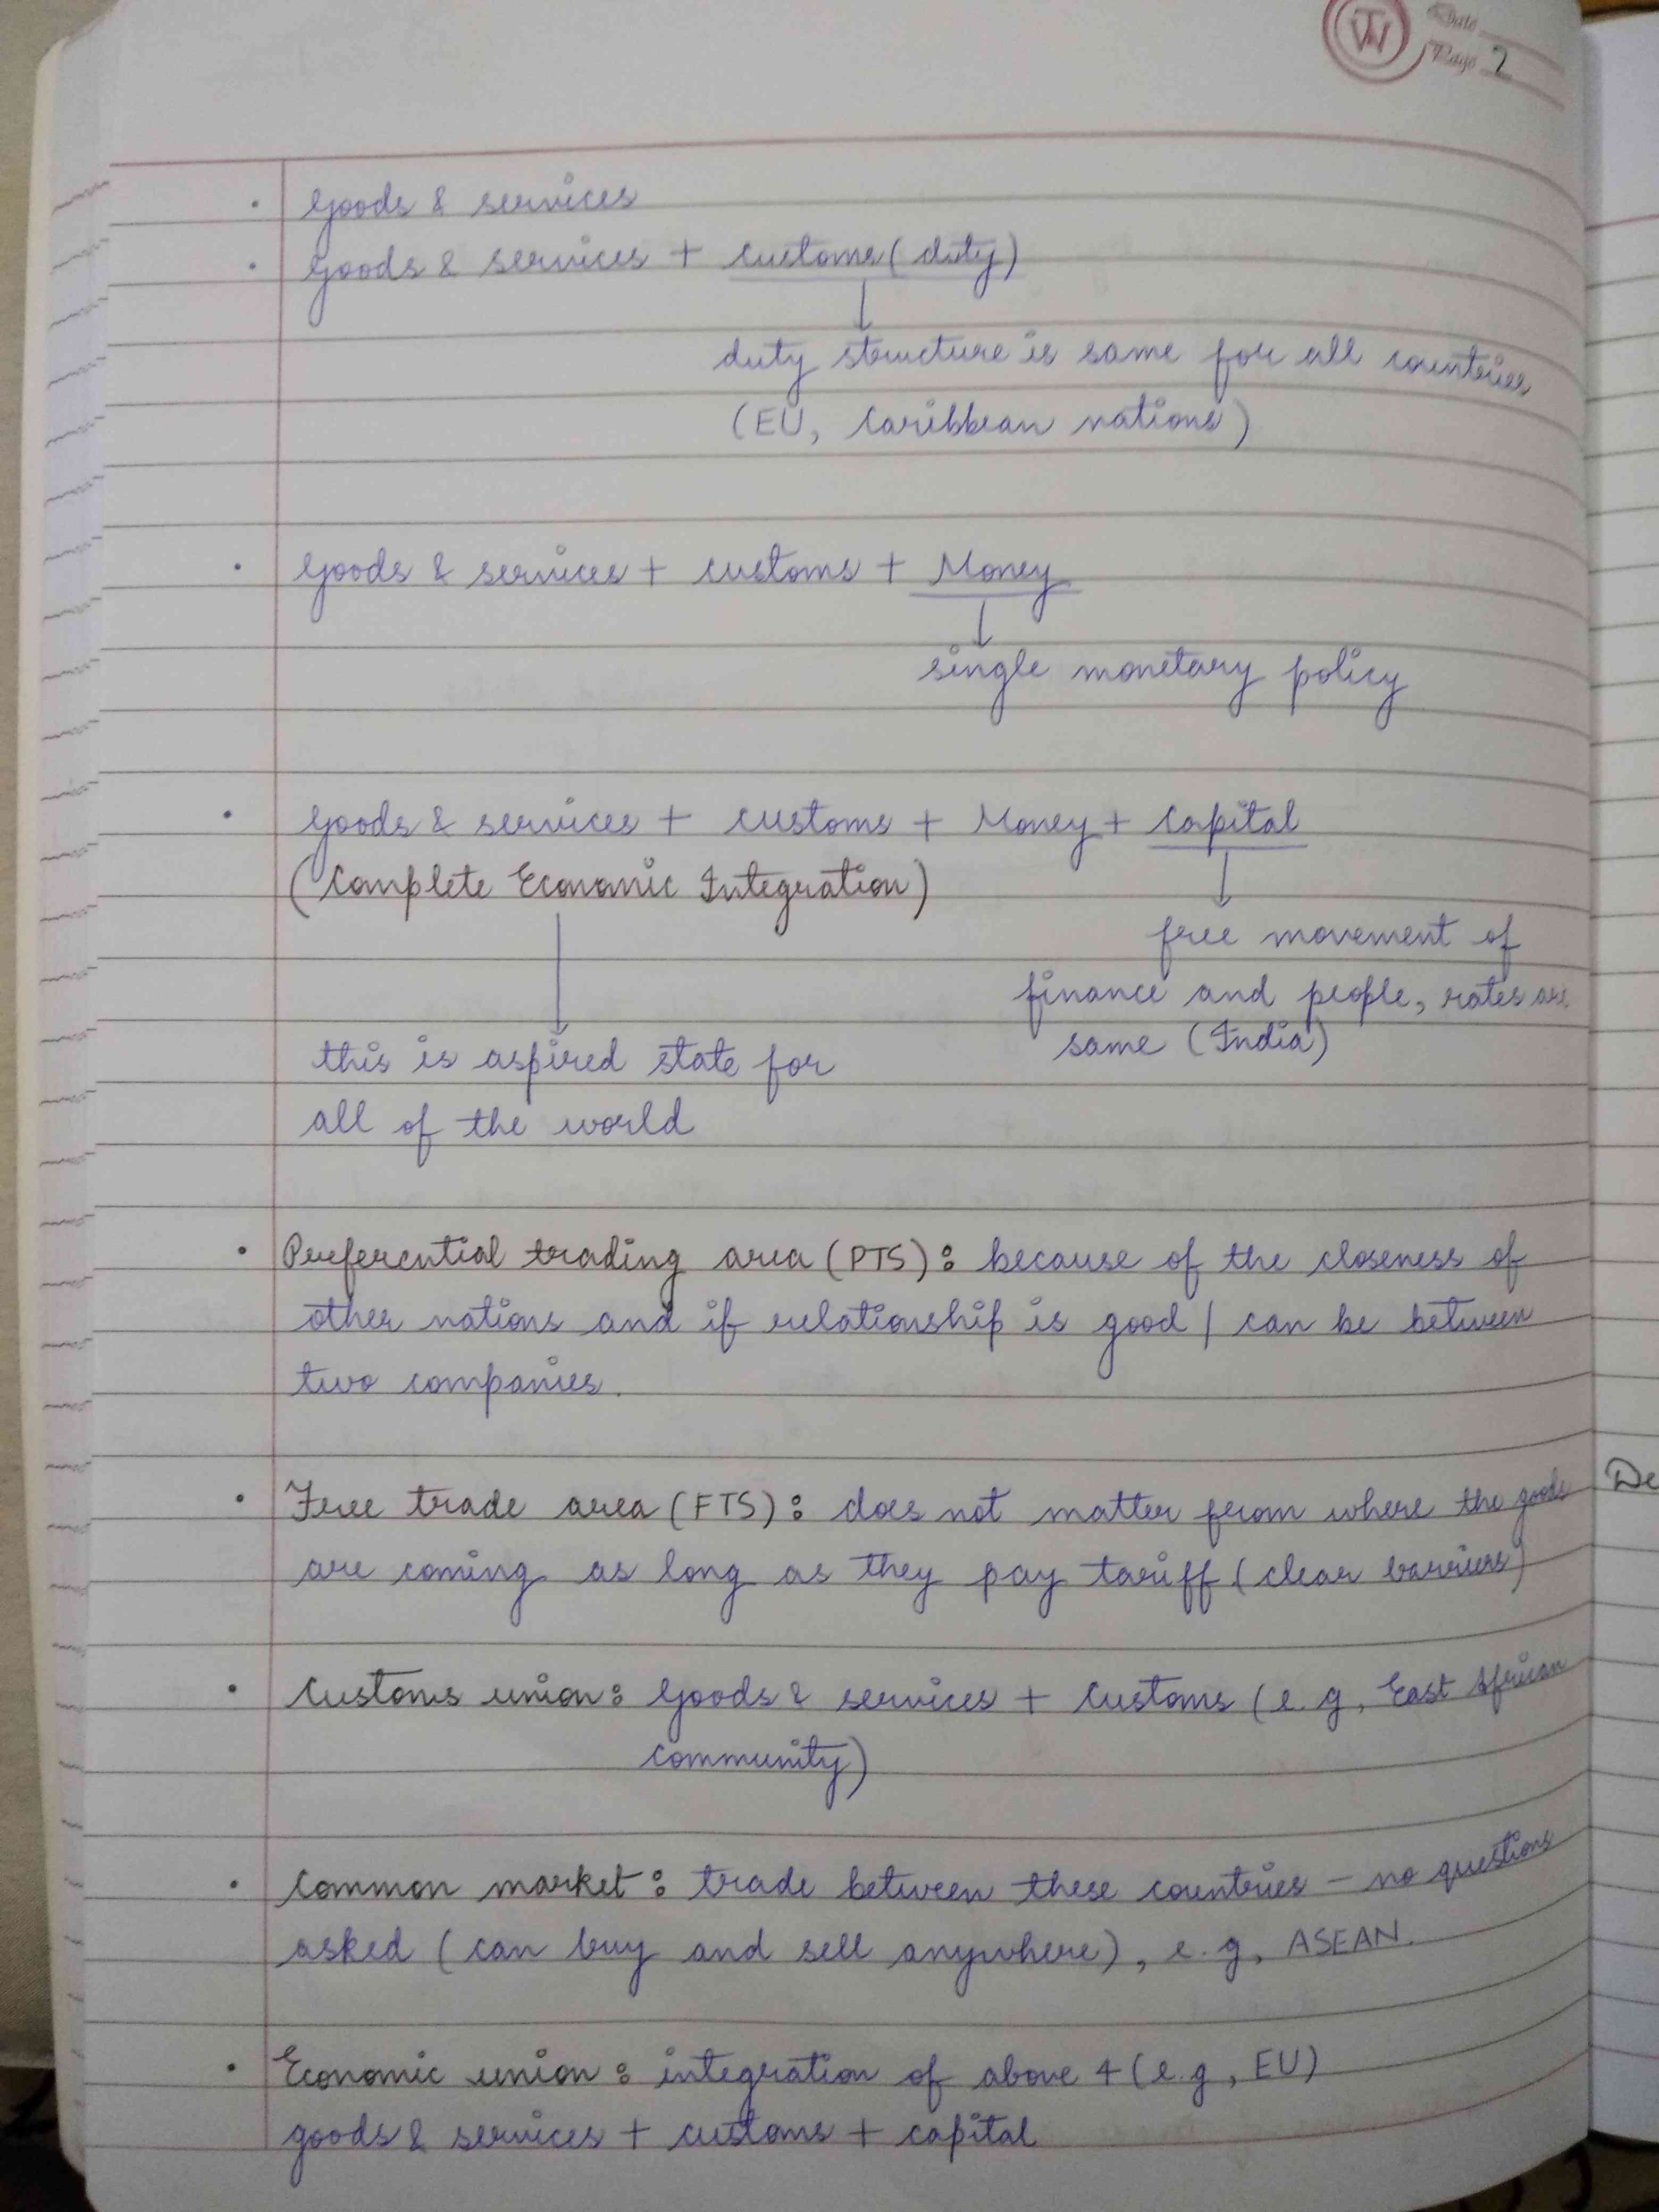 Date
Page 2
• Goods & services
• Goods & services + customs (duty)
duty structure is same for all countries
(EU, Caribbean nations)
• Goods & services + customs + Money
single monetary policy
• Goods & services + customs + Money + capital
(Complete Economic Integration)
free movement of
finance and people, rates are
same (India)
this is aspired state for
all of the world
• Preferential trading area (PTS): because of the closeness of
other nations and if relationship is good / can be between
two companies.
• Free trade area (FTS): does not matter from where the goods
are coming as long as they pay tariff (clear barriers)
• Customs union: Goods & services + Customs (e.g, East African
community)
• Common market: trade between these countries - no questions
asked (can buy and sell anywhere), e.g, ASEAN.
• Economic union: integration of above 4 (e.g, EU)
goods & services + customs + capital
De